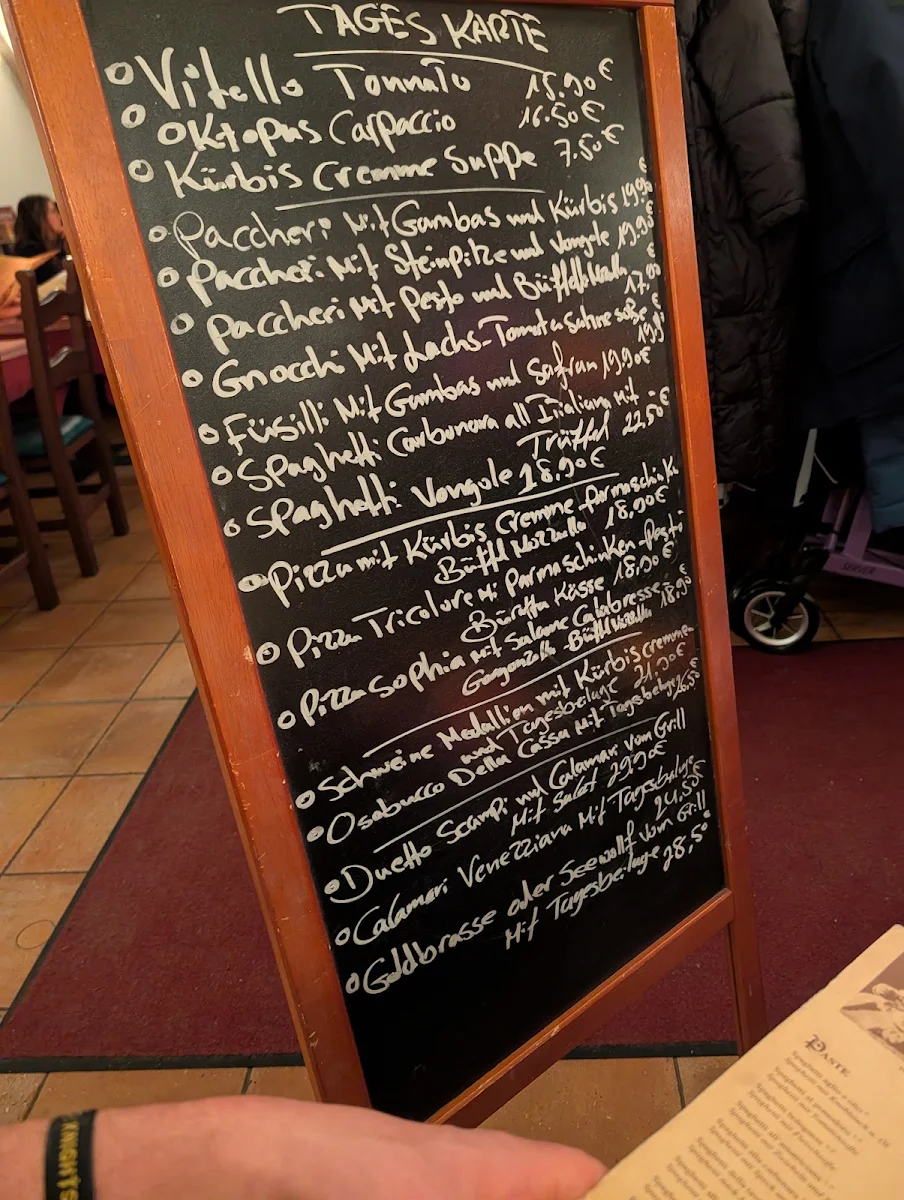 TAGES KARTE
Vitello Tonnato 15.90€
Oktopus Carpaccio 16.50€
Kürbis Cremme Suppe 7.50€
Paccheri Mit Gambas und Kürbis 19.90€
Paccheri Mit Steinpilze und Vongole 19.90€
Paccheri Mit Pesto und 17.90€
Gnocchi Mit Lachs-Tomatasahne soße 19.90€
Füsilli Mit Gambas und Safran 19.90€
Spaghetti Carbonara all Italiana mit
Trüffel 22.50€
Spaghetti Vongole 18.90€
Pizza mit Kürbis Cremme-Parmaschinken
Büffel Mozzalla 18,90€
Pizza Tricolore Mit Parmaschinken-Pesto
Büratta Kässe 18.90€
Pizza Sophia mit Salame Calabresse
Gorgonzolla-Büffel 18.90€
Schweine Medallion mit Kürbiscremme
und Tagesbeilage 21.90€
Osabucco Della Cassa Mit Tagesbeilage 26.50
Duetto Scampi und Calamari vom Grill
Mit Salat 29.90€
Calamari Venezziana Mit Tagesbeilage
24.50€
Goldbrasse oder Seewolf Vom Grill
Mit Tagesbeilage 28,50€
SERVER
PASTE
KNIGHTS